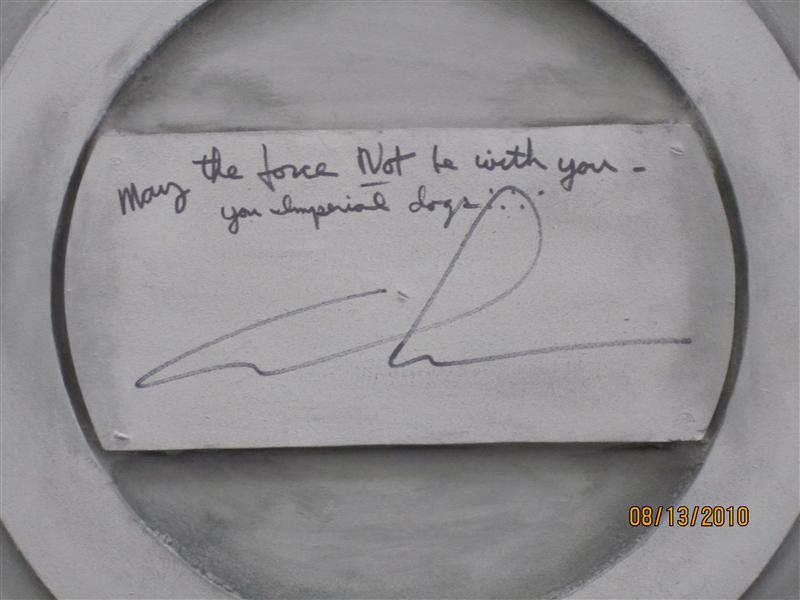 May the force Not be with you -
you Imperial dogs...
08/13/2010